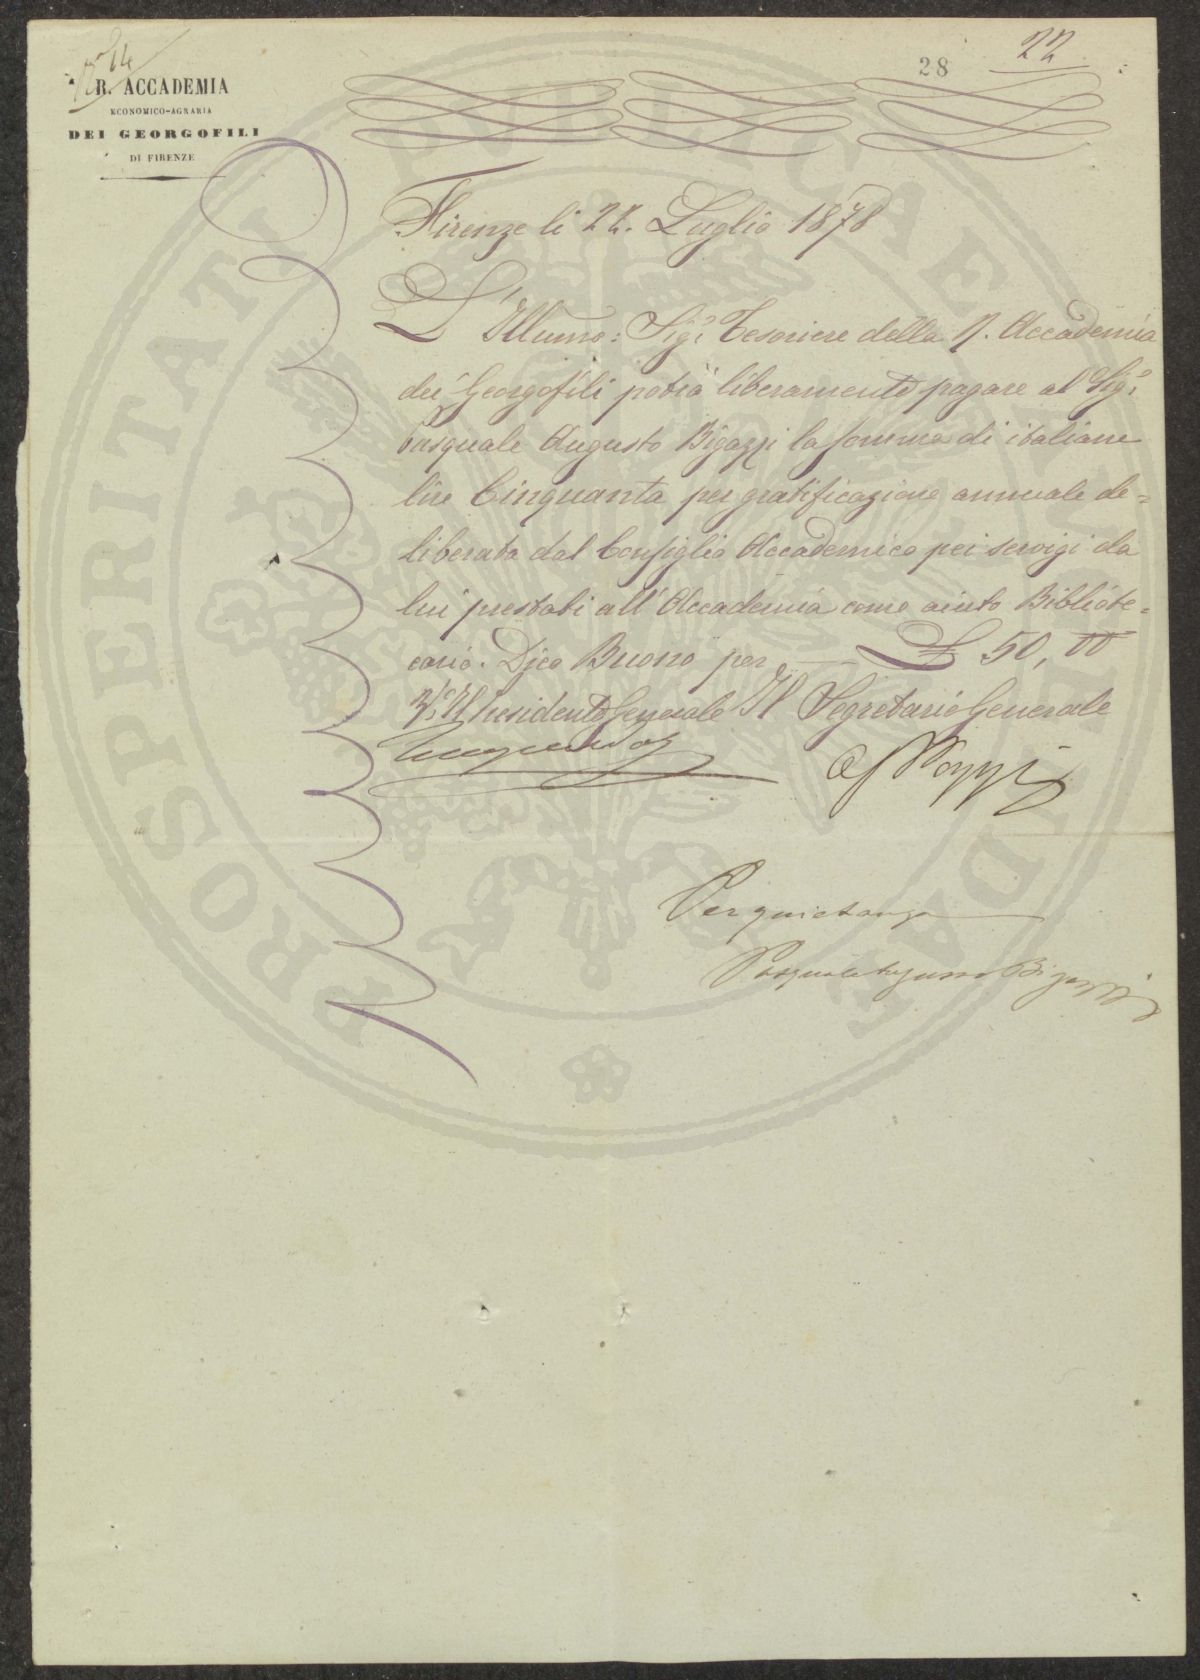 N° 14
R. ACCADEMIA
ECONOMICO-AGRARIA
DEI GEORGOFILI
DI FIRENZE
28
22
Firenze li 22. Luglio 1878
L'Illumo: Sigr Tesoriere della R. Accademia
dei Georgofili potrà liberamente pagare al Sigr
Pasquale Augusto Bigazzi la somma di italiane
lire Cinquanta per gratificazione annuale de=
liberata dal Consiglio Accademico pei servigi da
lui prestati all'Accademia come aiuto Bibliote=
cario. Dico Buono per £ 50,00
Il Presidente Generale Il Segretario Generale
Per quietanza
Pasquale Augusto Bigazzi
PROSPERITATI PUBLICAE AUGENDAE